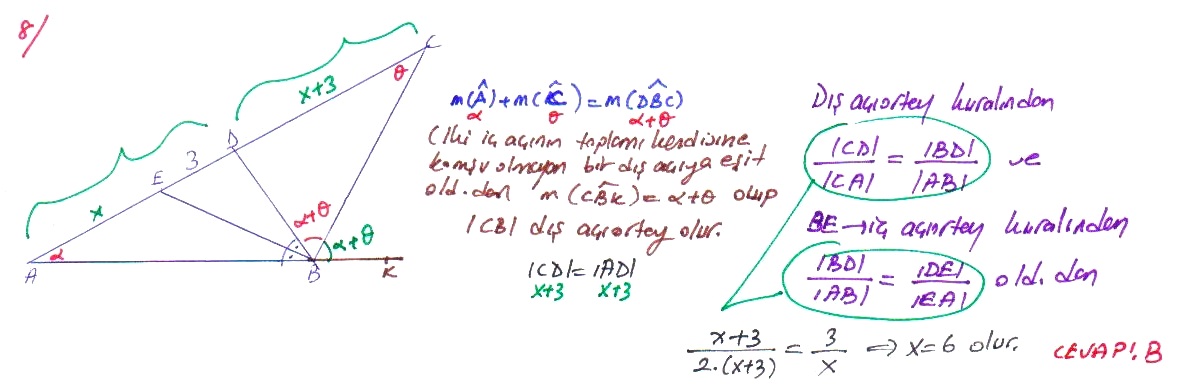 8/
x+3
C
θ
D
3
E
x
α+θ
α+θ
A
α
B
K
m(Â)+m(Ĉ)=m(DB̂C)
α θ α+θ
(İki iç açının toplamı kendisine
komşu olmayan bir dış açıya eşit
old.dan m(CB̂K)=α+θ olup
|CB| dış açıortay olur.
|CD|=|AD|
x+3 x+3
Dış açıortay kuralından
|CD|/|CA| = |BD|/|AB| ve
BE→iç açıortay kuralından
|BD|/|AB| = |DE|/|EA| old.dan
x+3/2.(x+3) = 3/x ⇒ x=6 olur.
CEVAP: B